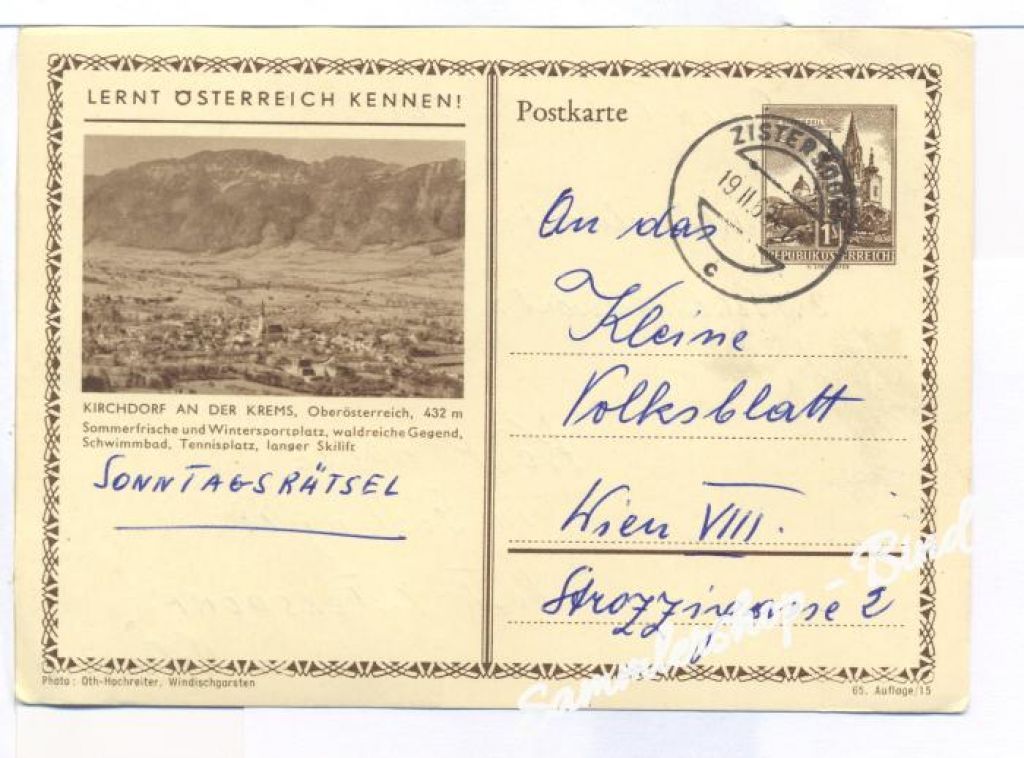 LERNT ÖSTERREICH KENNEN!
KIRCHDORF AN DER KREMS, Oberösterreich, 432 m
Sommerfrische und Wintersportplatz, waldreiche Gegend,
Schwimmbad, Tennisplatz, langer Skilift
SONNTAGSRÄTSEL
Photo: Oth-Hochreiter, Windischgarsten
Postkarte
ZISTERSDORF
19.II.
c
1S
REPUBLIK ÖSTERREICH
An das
Kleine
Volksblatt
Wien VIII.
Strozzigasse 2
Sammlershop - Bind
65. Auflage/15